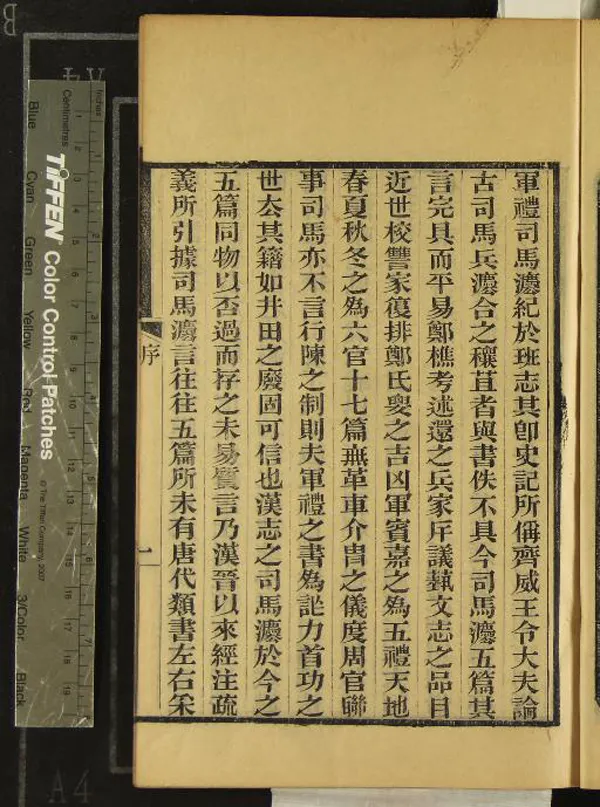 軍禮司馬灋紀於班志其卽史記所偁齊威王令大夫論
古司馬兵灋合之穰苴者與書佚不具今司馬灋五篇其
言完具而平易鄭樵考述還之兵家斥議蓺文志之品目
近世校讐家復排鄭氏㪅之吉凶軍賓嘉之爲五禮天地
春夏秋冬之爲六官十七篇無革車介胄之儀度周官聯
事司馬亦不言行陳之制則夫軍禮之書爲詎力首功之
世厺其籍如井田之廢固可信也漢志之司馬灋於今之
五篇同物以否過而存之未易質言乃漢晉以來經注疏
義所引據司馬灋言往往五篇所未有唐代類書左右采
序
一
Inches
Centimetres
TIFFEN® Color Control Patches
© The Tiffen Company, 2007
Blue
Cyan
Green
Yellow
Red
Magenta
White
3/Color
Black
A4
A4
B